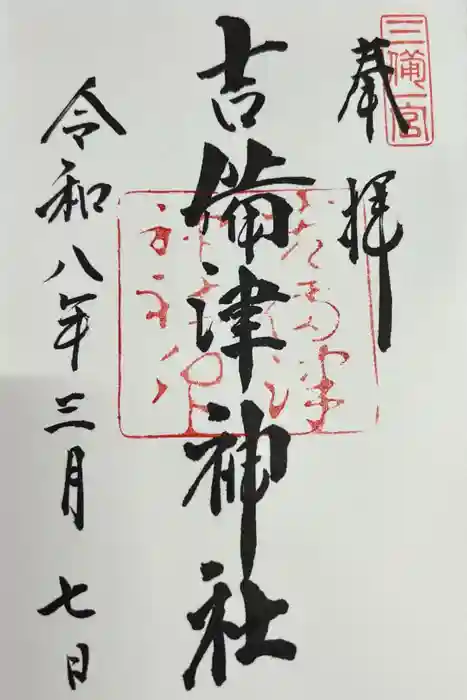 三備一宮
奉拝
吉備津神社
令和八年三月七日